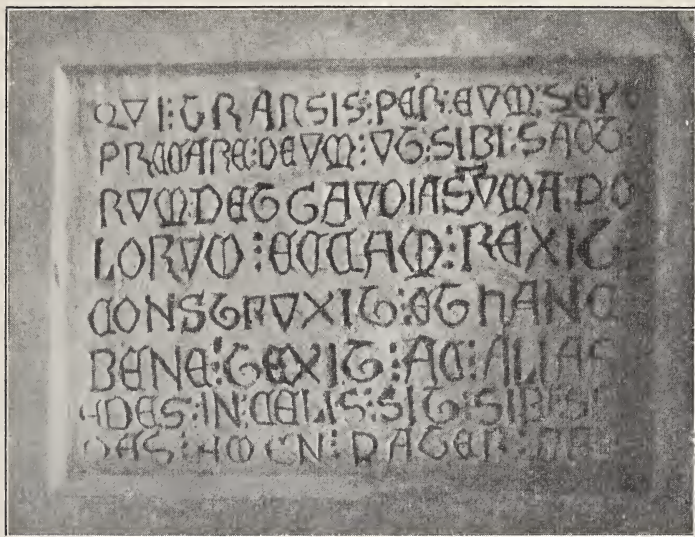 QVI:TRANSIS:PER:EVM:
PRECARE:DEVM:VT:SIBI:SACT:
RVM:DET GAVDIA SVMA:PO
LORVM:ECCAM:REXIT
CONSTRVXIT:ET HANC
BENE:TEXIT:AC:ALIAS
EDES:IN:CELIS:SIT:SIBI
DAS:AMEN:PATER: